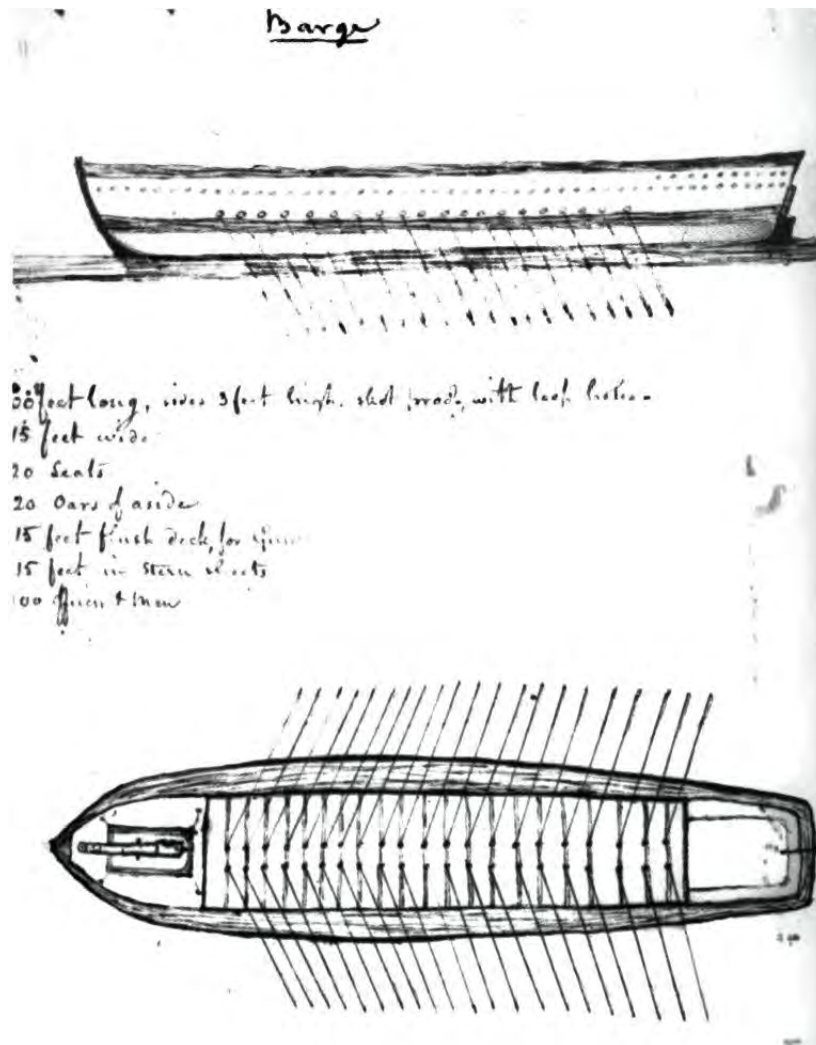 Barge
feet long, sides 3 feet high. shot proof, with loop holes.
15 feet wide
20 Seats
20 Oars of aside
15 feet flush deck, for
15 feet in stern sheets
100 & Men